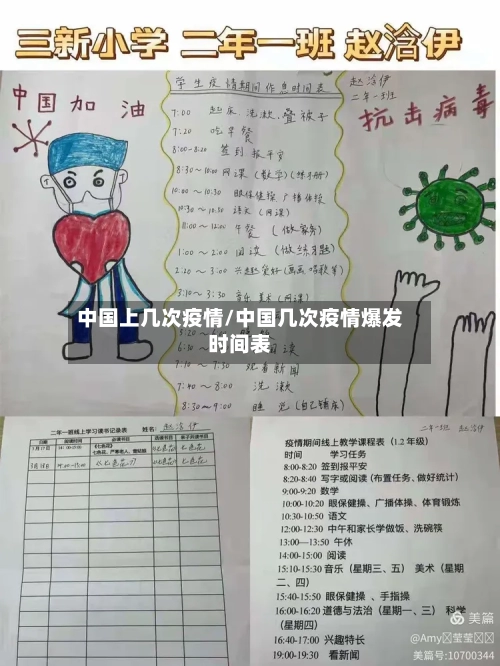 三新小学 二年一班 赵浛伊
学生疫情期间作息时间表
赵浛伊
二年一班
中国加油
抗击病毒
7:00 起床、洗漱、叠被子
7:20 吃早餐
8:00-8:20 签到报平安
8:30~10:00 网课(数学)(练习册)
10:00~10:30 眼保健操 广播体操
10:30~10:50 语文(网课)
11:00~12:00 午餐(做家务)
1:00~2:00 阅读(做练习题)
2:20~3:00 兴趣爱好(画画唱歌等)
3:10~3:30 音乐 美术(网课)
中国上几次疫情/中国几次疫情爆发
时间表
阅读
7:10~7:30 观看新闻
7:40~8:00 洗漱
8:30~9:00 睡觉(自己睡床)
二年一班线上学习读书记录表 姓名: 赵浛伊
日期 阅读时间 必读书目 选读书目 亲子共读书目
《七色花》
3月18日 《七色花》
二年一班 赵浛伊
疫情期间线上教学课程表(1.2年级)
时间 学习任务
8:00-8:20 签到报平安
8:20-8:40 写字或阅读(布置任务、做好统计)
9:00-9:20 数学
10:00-10:20 眼保健操、广播体操、体育锻炼
10:30-10:50 语文
12:00-12:30 中午和家长学做饭、洗碗筷
13:00—13:50 午休
14:00-15:00 阅读
15:10-15:30 音乐(星期三、五) 美术(星期
二、四)
15:40-15:50 眼保健操 、手指操
16:00-16:20 道德与法治(星期一、三) 科学
(星期四)
16:40-17:00 兴趣特长
19:00-19:30 看新闻
美篇
@Amy 莹莹
美篇号:10700344